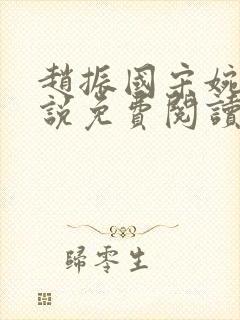 趙振國宋婉
說免費閱讀
歸零生